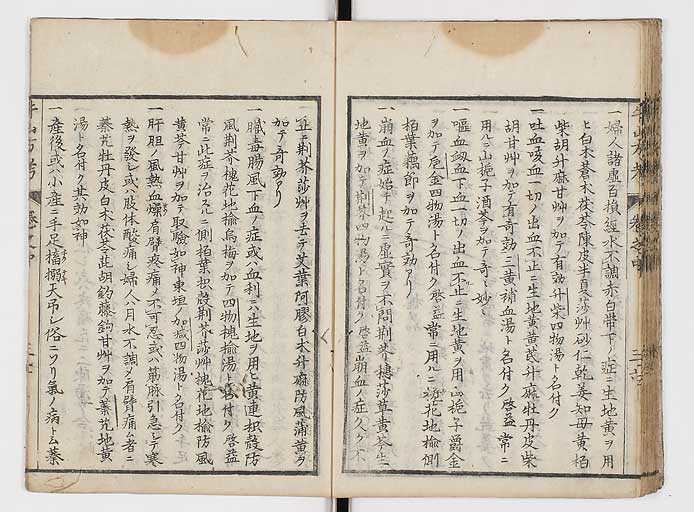 一婦人諸虚百損經水不調赤白帯下ノ症ニ生地黄ヲ用
ヒ白朮蒼朮茯苓陳皮半夏莎艸砂仁乾姜知母黄栢
柴胡升麻甘艸ヲ加テ有効升柴四物湯ト名付ク
一吐血咳血一切ノ出血不止ニ生地黄黄芪升麻牡丹皮柴
胡甘艸ヲ加テ有奇効三黄補血湯ト名付ク啓益常ニ
用ルニ山梔子酒芩ヲ加テ奇々妙々
一嘔血衂血下血一切ノ出血不止ニ生地黄ヲ用山梔子爵金
ヲ加テ梔金四物湯ト名付ク啓益常ニ用ルニ槐花地楡側
柏葉藕節ヲ加テ奇効アリ
一崩血ノ症始テ起ルニ虚實ヲ不問荆芥
地黄ヲ加テ荆芥四物湯ト名付ク啓益崩血ノ症久ク不
止ニ荆芥莎艸ヲ去テ艾葉阿膠白朮升麻防風蒲黄ヲ
加テ奇効アリ
一臓毒腸風下血ノ症或ハ血利ニハ生地ヲ用ヒ黄連枳殻防
風荆芥槐花地楡烏梅ヲ加テ四物槐楡湯ト名付ク啓益
常ニ此症ヲ治スルニ側柏葉枳殻荆芥莎艸槐花地楡防風
黄芩甘艸ヲ加テ取驗如神東垣ノ加減四物湯ト名付ク
一肝胆ノ風熱血燥肩臂疼痛ノ不可忍或ハ筋脉引急シテ寒
熱ヲ發シ或ハ肢体酸痛シ婦人ハ月水不調メ肩臂痛ム者ニ
蓁艽牡丹皮白朮茯苓柴胡釣藤鉤甘艸ヲ加テ蓁艽地黄
湯ト名付ク其効如神
一産後或ハ小産ニ手足搐搦天吊シ俗ニコリ氣ノ病ト云蓁